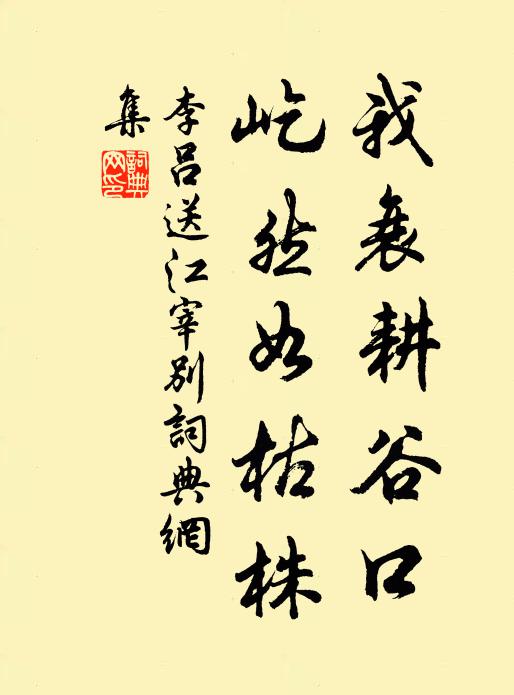 我衰耕谷口
屹然如枯株
李吕送江宰别詞典網
集
詞典
网印